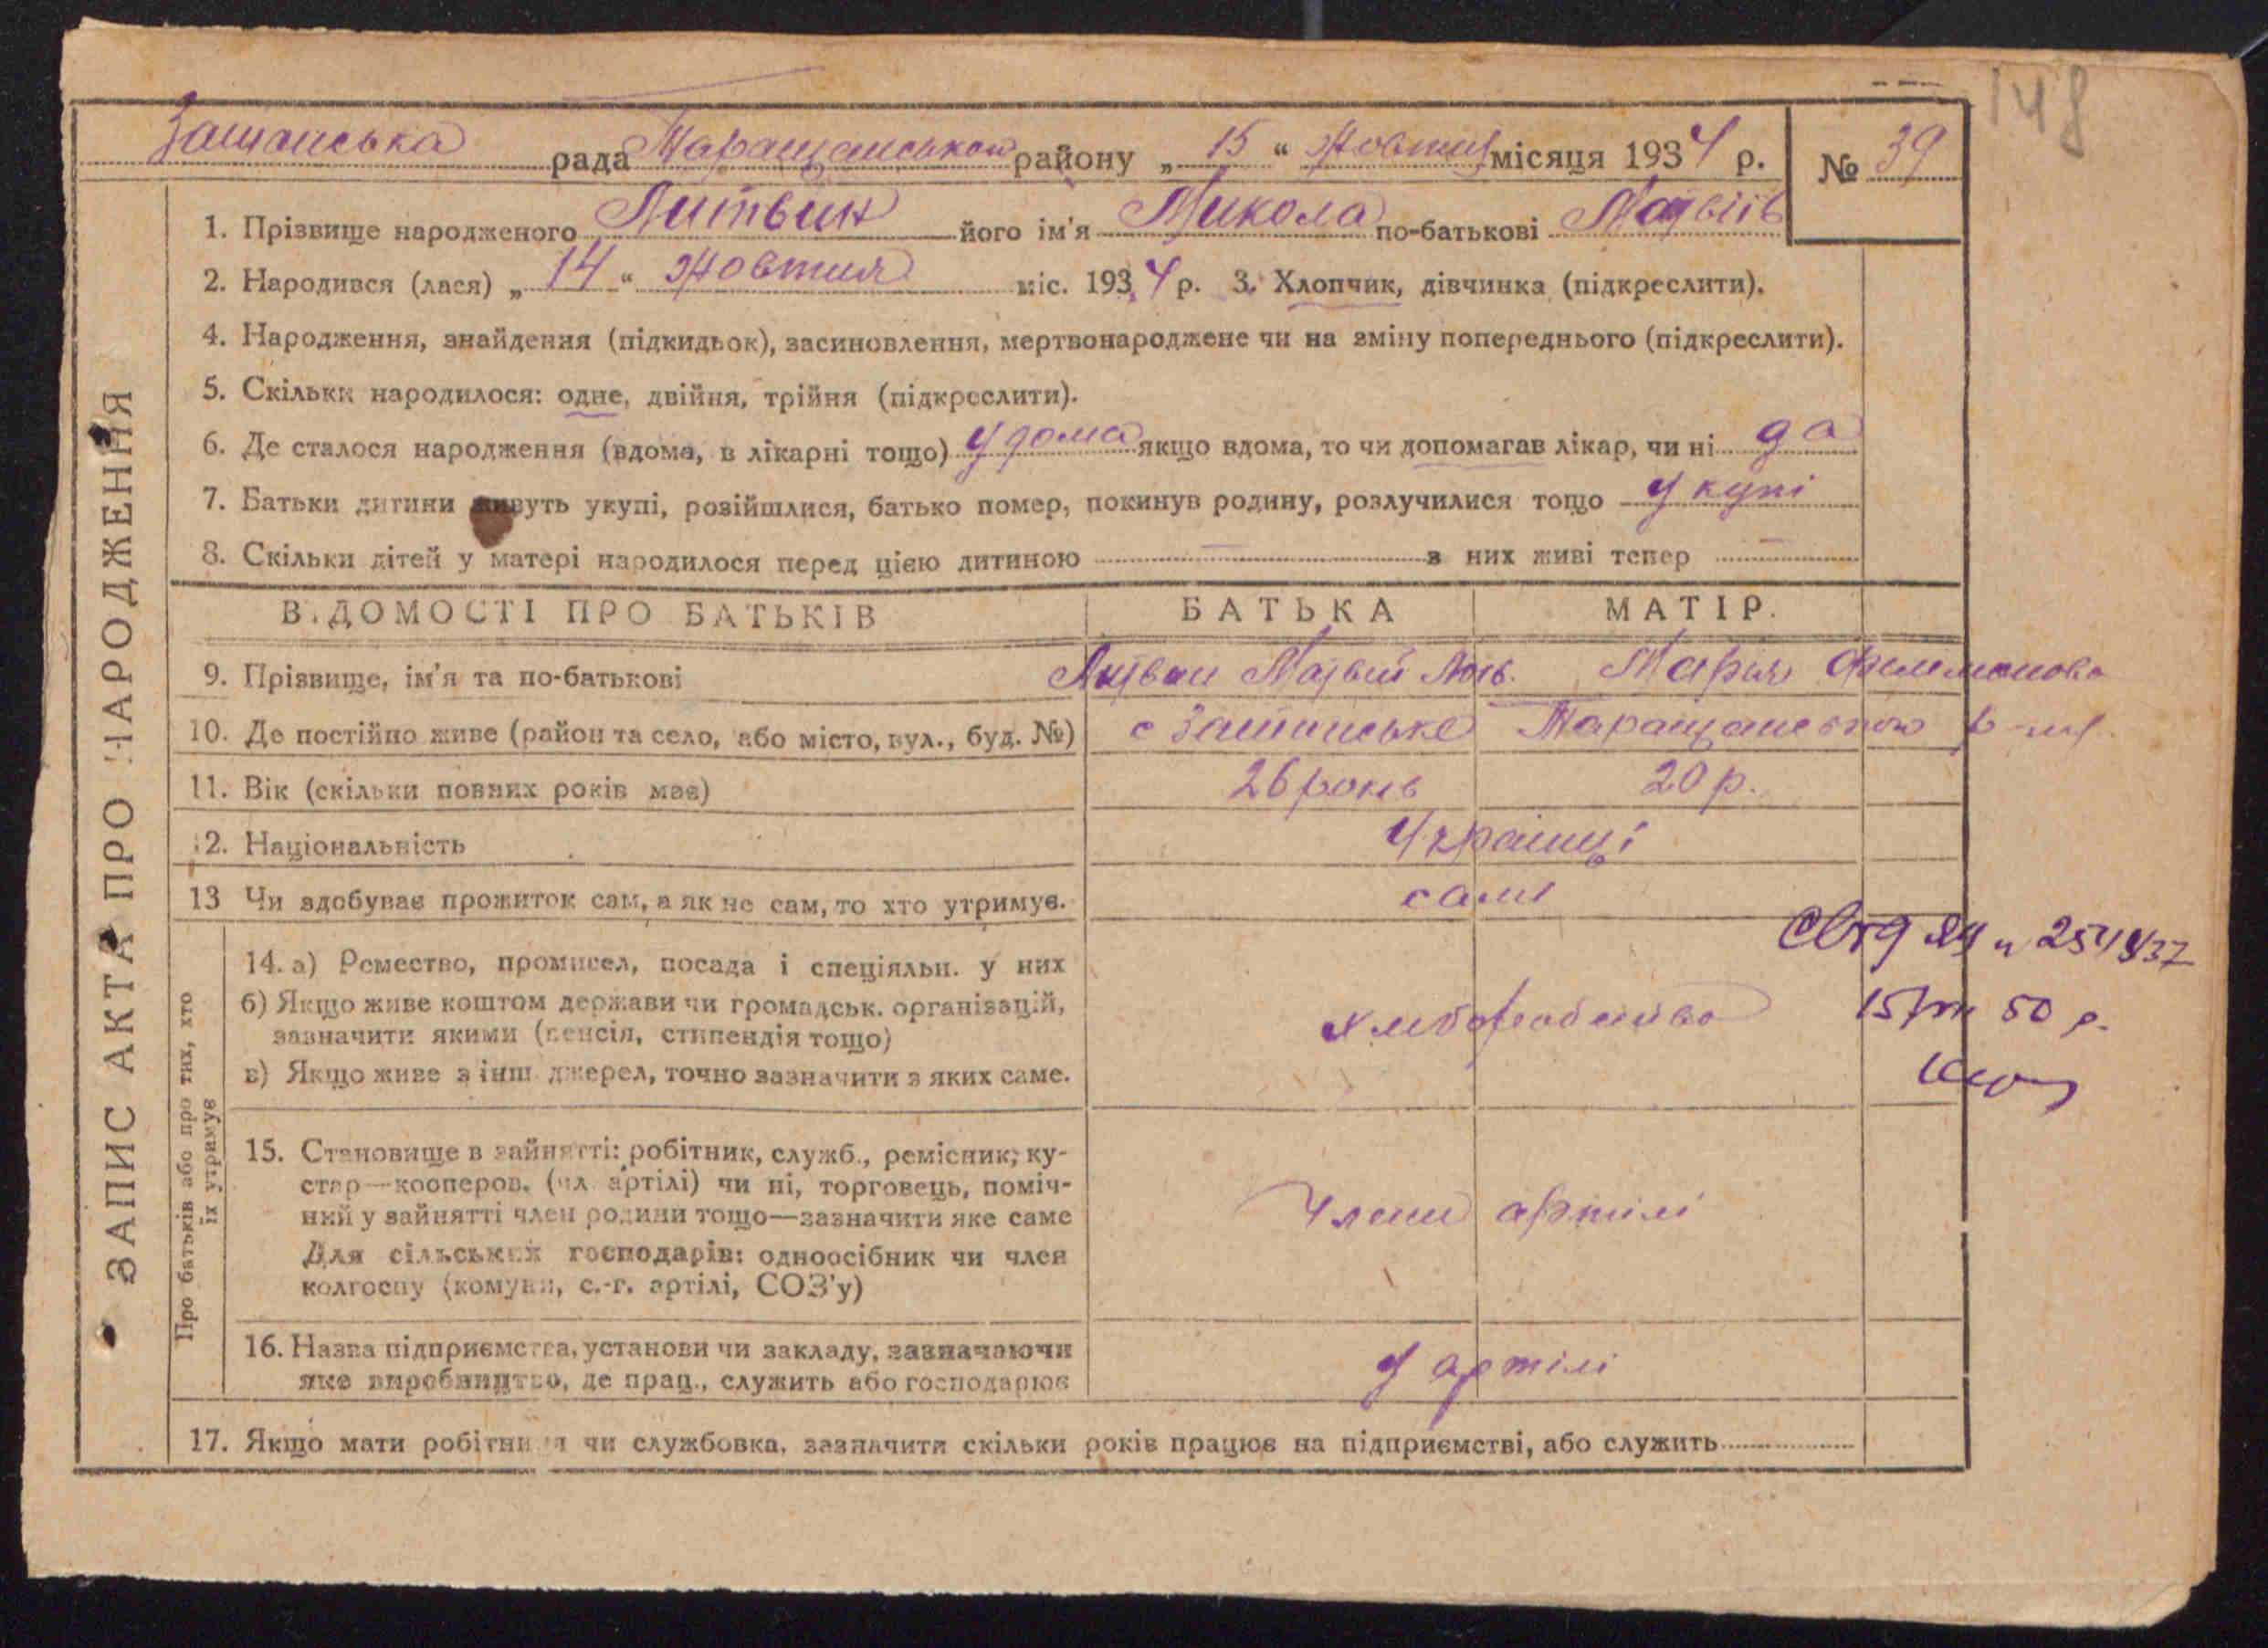 148
рада Таращанської району „ 15 “ Жовтня місяця 1934 р. № 39
1. Прізвище народженого Литвин його ім'я Микола по-батькові Матвіїв
2. Народився (лася) „ 14 “ Жовтня міс. 1934 р. 3. Хлопчик, дівчинка (підкреслити).
4. Народження, знайдення (підкидьок), засиновлення, мертвонароджене чи на зміну попереднього (підкреслити).
5. Скільки народилося: одне, двійня, трійня (підкреслити).
6. Де сталося народження (вдома, в лікарні тощо) У дома якщо вдома, то чи допомагав лікар, чи ні да
7. Батьки дитини живуть укупі, розійшлися, батько помер, покинув родину, розлучилися тощо У купі
8. Скільки дітей у матері народилося перед цією дитиною — з них живі тепер —
ВІДОМОСТІ ПРО БАТЬКІВ БАТЬКА МАТІР.
9. Прізвище, ім'я та по-батькові Литвин Матвій Марія Филимонова
10. Де постійно живе (район та село, або місто, вул., буд. №) с Таращанської р-ну.
11. Вік (скільки повних років має) 26 років 20 р.
12. Національність Українці
13 Чи здобуває прожиток сам, а як не сам, то хто утримує. самі
14. а) Ремество, промисел, посада і спеціяльн. у них
б) Якщо живе коштом держави чи громадськ. організацій,
зазначити якими (пенсія, стипендія тощо)
в) Якщо живе з інш. джерел, точно зазначити з яких саме.
50 р.
15. Становище в зайнятті: робітник, служб., ремісник, ку-
стар—кооперов. (чл. артілі) чи ні, торговець, поміч-
ний у зайнятті член родини тощо—зазначити яке саме
Для сільських господарів: одноосібник чи член
колгоспу (комуни, с.-г. артілі, СОЗ'у)
Члени артілі
16. Назва підприємства, установи чи закладу, зазначаючи
яке виробництво, де прац., служить або господарює
У артілі
17. Якщо мати робітниця чи службовка, зазначити скільки років працює на підприємстві, або служить
ЗАПИС АКТА ПРО НАРОДЖЕННЯ
Про батьків або про тих, хто
їх утримує